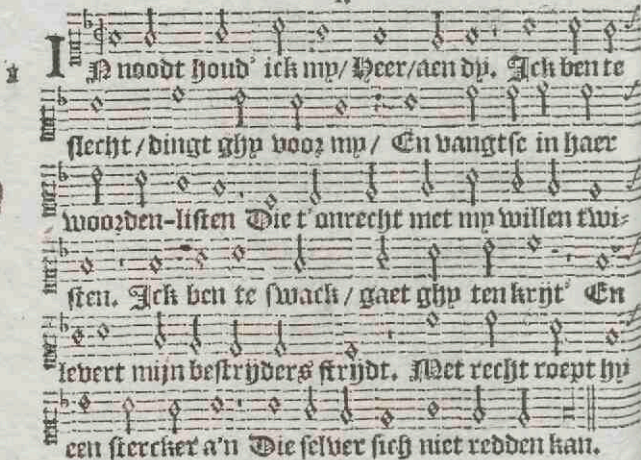 1 IN noodt houd' ick my/ Heer/aen dy. Ick ben te
slecht/dingt ghy voor my/ En vangtse in haer
woorden-listen Die t'onrecht met my willen twi-
sten. Ick ben te swack/gaet ghy ten krijt' En
levert mijn bestrijders strijdt. Met recht roept hy
een stercker a'n Die selver sich niet redden kan.